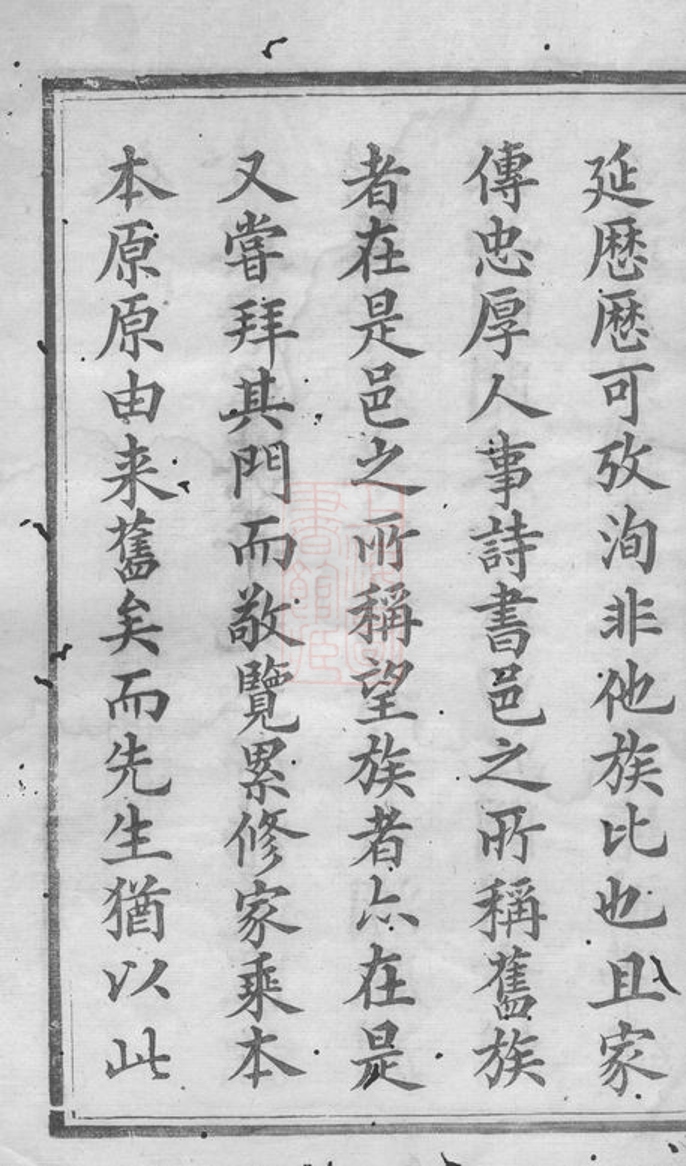 延歷歷可攷洵非他族比也且家
傳忠厚人事詩書邑之所稱舊族
者在是邑之所稱望族者亦在是
又嘗拜其門而敬覽累修家乘本
本原原由来舊矣而先生猶以此